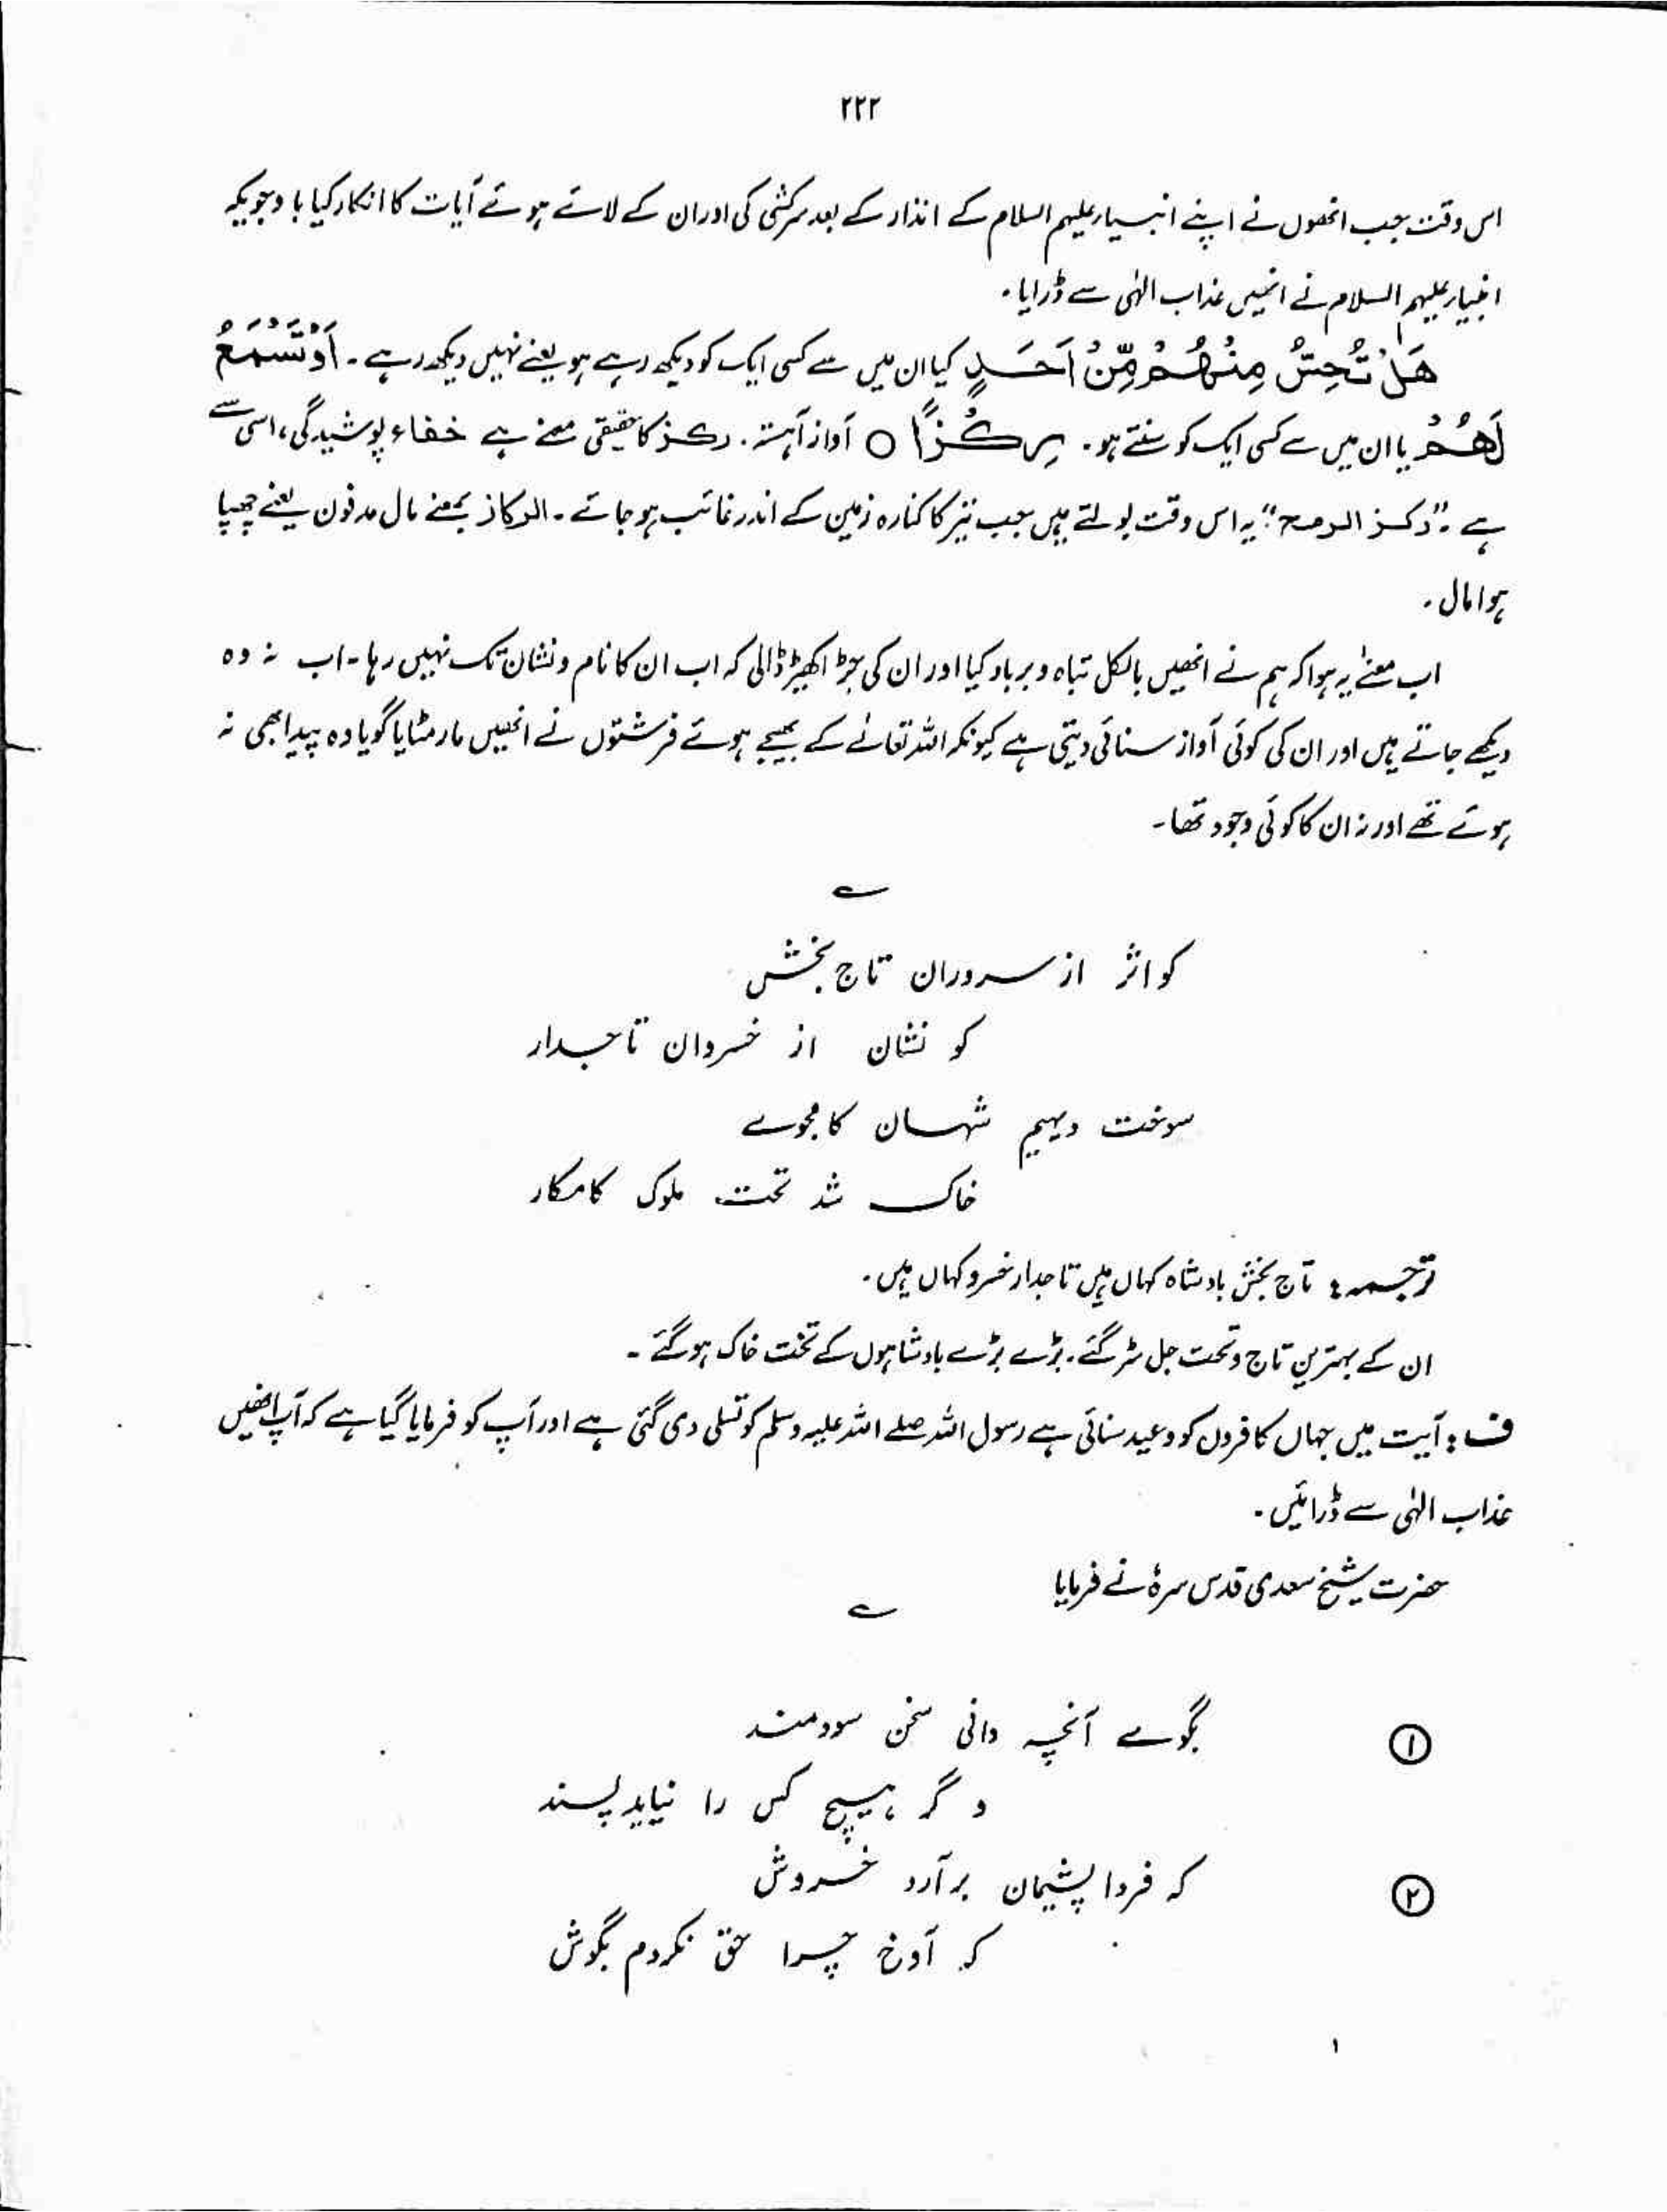 ۲۲۲
اس وقت جب انھوں نے اپنے انبیاء علیہم السلام کے انذار کے بعد سرکشی کی اور ان کے لائے ہوئے آیات کا انکار کیا باوجویکہ
انبیاء علیہم السلام نے انھیں عذاب الٰہی سے ڈرایا۔
هَلْ تُحِسُّ مِنْهُمْ مِّنْ اَحَدٍ کیا ان میں سے کسی ایک کو دیکھ رہے ہو یعنے نہیں دیکھ رہے۔ اَوْ تَسْمَعُ
لَهُمْ یا ان میں سے کسی ایک کو سنتے ہو۔ رِكْزًا ○ آواز آہستہ۔ رکز کا حقیقی معنے ہے خفاء پوشیدگی، اسی سے
ہے۔ "رکز الرمح" یہ اس وقت بولتے ہیں جب نیزہ کا کنارہ زمین کے اندر غائب ہو جائے۔ الرکاز بمعنے مال مدفون یعنے چھپا
ہوا مال۔
اب معنیٰ یہ ہوا کہ ہم نے انھیں بالکل تباہ و برباد کیا اور ان کی جڑ اکھیڑ ڈالی کہ اب ان کا نام و نشان تک نہیں رہا۔ اب نہ وہ
دیکھے جاتے ہیں اور ان کی کوئی آواز سنائی دیتی ہے کیونکہ اللہ تعالےٰ کے بھیجے ہوئے فرشتوں نے انھیں مار مٹایا گویا وہ پیدا بھی نہ
ہوئے تھے اور نہ ان کا کوئی وجود تھا۔
؎
کو اثر از سروران تاج بخش
کو نشان از خسروان تاجدار
سوخت دیہیم شہان کامجوے
خاک شد تخت ملوک کامگار
ترجمہ: تاج بخش بادشاہ کہاں ہیں تاجدار خسرو کہاں ہیں۔
ان کے بہترین تاج و تخت جل سڑ گئے۔ بڑے بڑے بادشاہوں کے تخت خاک ہو گئے۔
ف: آیت میں جہاں کافروں کو وعید سنائی ہے رسول اللہ صلے اللہ علیہ وسلم کو تسلی دی گئی ہے اور آپ کو فرمایا گیا ہے کہ آپ انھیں
عذاب الٰہی سے ڈرائیں۔
حضرت شیخ سعدی قدس سرہٗ نے فرمایا
؎
① بگوے آنچہ دانی سخن سودمند
وگر ہیچ کس را نیاید پسند
② کہ فردا پشیمان برآرد خروش
کہ آوخ چرا حق نکردم بگوش
۱